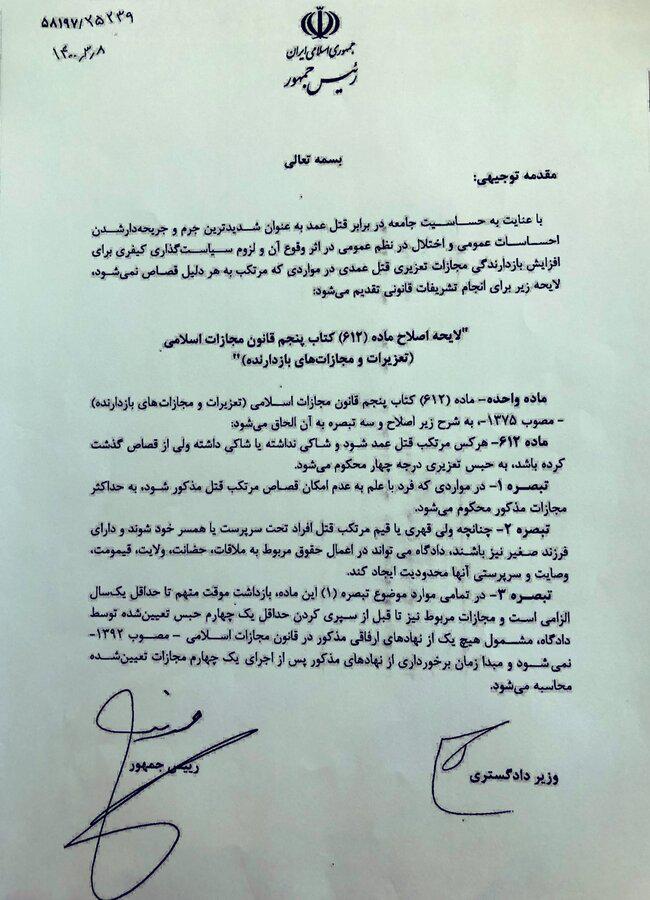 ۵۸۱۹۷/۲۵۲۳۹
۱۴۰۰٫۳٫۸
جمهوری اسلامی ایران
رئیس جمهور
بسمه تعالی
مقدمه توجیهی:
با عنایت به حساسیت جامعه در برابر قتل عمد به عنوان شدیدترین جرم و جریحه‌دارشدن
احساسات عمومی و اختلال در نظم عمومی در اثر وقوع آن و لزوم سیاست‌گذاری کیفری برای
افزایش بازدارندگی مجازات تعزیری قتل عمدی در مواردی که مرتکب به هر دلیل قصاص نمی‌شود،
لایحه زیر برای انجام تشریفات قانونی تقدیم می‌شود:
"لایحه اصلاح ماده (۶۱۲) کتاب پنجم قانون مجازات اسلامی
(تعزیرات و مجازات‌های بازدارنده)"
ماده واحده- ماده (۶۱۲) کتاب پنجم قانون مجازات اسلامی (تعزیرات و مجازات‌های بازدارنده)
– مصوب ۱۳۷۵-، به شرح زیر اصلاح و سه تبصره به آن الحاق می‌شود:
ماده ۶۱۲- هرکس مرتکب قتل عمد شود و شاکی نداشته یا شاکی داشته ولی از قصاص گذشت
کرده باشد، به حبس تعزیری درجه چهار محکوم می‌شود.
تبصره ۱- در مواردی که فرد با علم به عدم امکان قصاص مرتکب قتل مذکور شود، به حداکثر
مجازات مذکور محکوم می‌شود.
تبصره ۲- چنانچه ولی قهری یا قیم مرتکب قتل افراد تحت سرپرست یا همسر خود شوند و دارای
فرزند صغیر نیز باشند، دادگاه می تواند در اعمال حقوق مربوط به ملاقات، حضانت، ولایت، قیمومت،
وصایت و سرپرستی آنها محدودیت ایجاد کند.
تبصره ۳- در تمامی موارد موضوع تبصره (۱) این ماده، بازداشت موقت متهم تا حداقل یک‌سال
الزامی است و مجازات مربوط نیز تا قبل از سپری کردن حداقل یک چهارم حبس تعیین‌شده توسط
دادگاه، مشمول هیچ یک از نهادهای ارفاقی مذکور در قانون مجازات اسلامی – مصوب ۱۳۹۲-
نمی شود و مبدا زمان برخورداری از نهادهای مذکور پس از اجرای یک چهارم مجازات تعیین‌شده
محاسبه می‌شود.
وزیر دادگستری
رییس جمهور